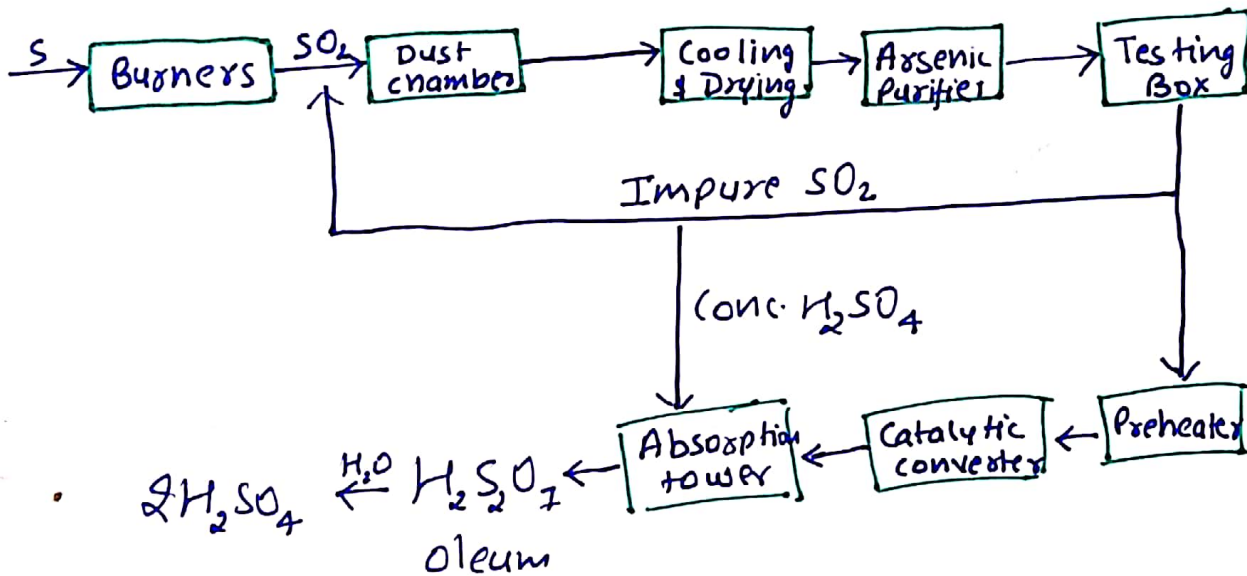 S
Burners
SO₂
Dust
chamber
Cooling
& Drying
Arsenic
Purifier
Testing
Box
Impure SO₂
Conc. H₂SO₄
Preheater
Catalytic
converter
Absorption
tower
H₂S₂O₇
Oleum
H₂O
2H₂SO₄